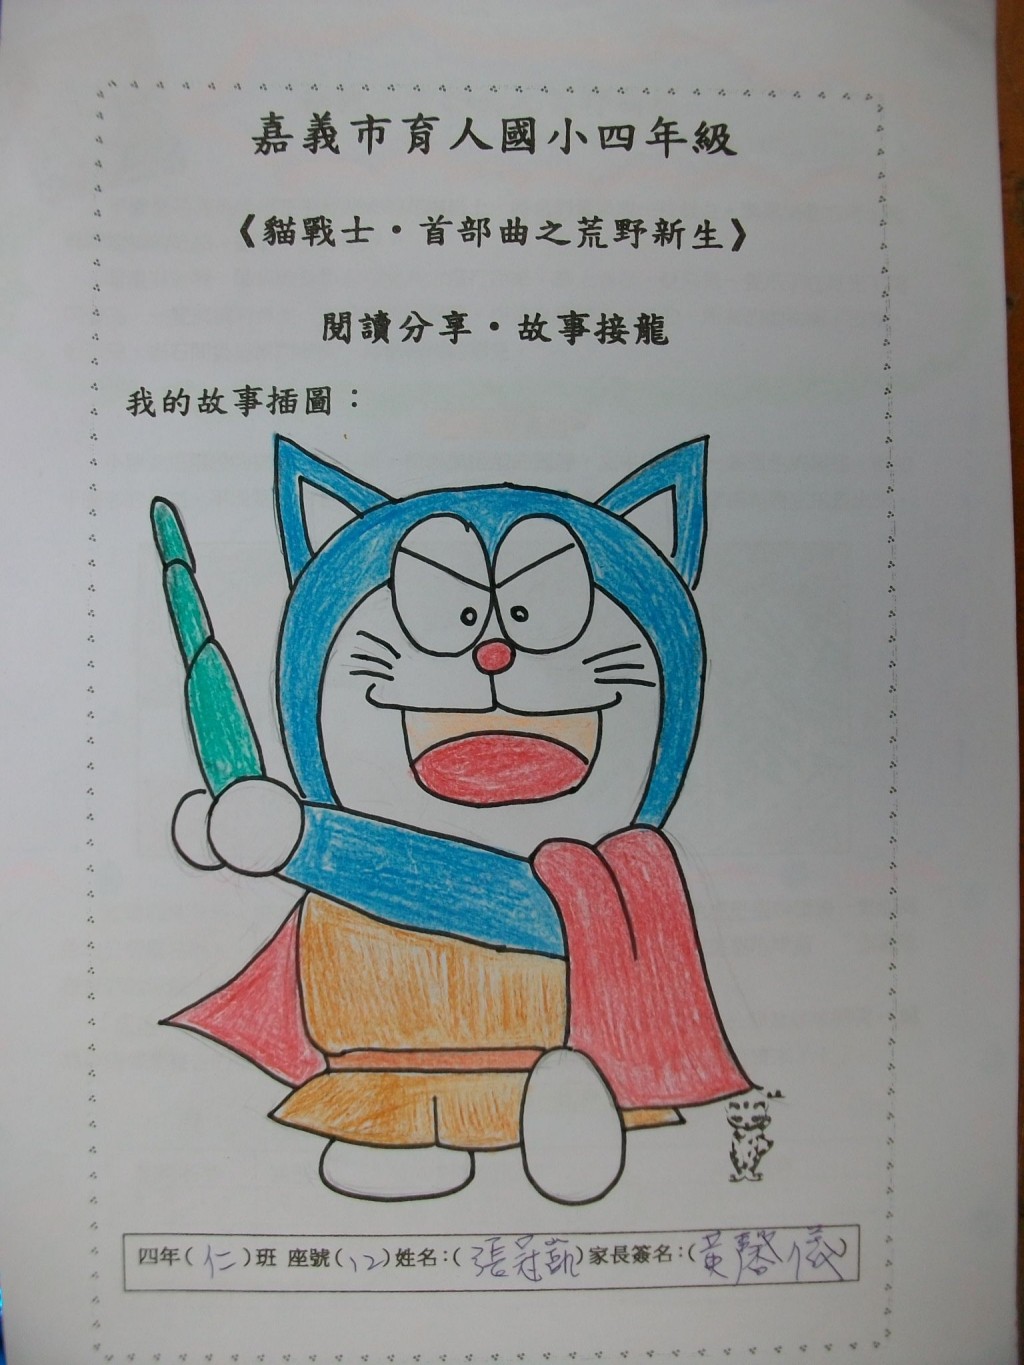 嘉義市育人國小四年級
《貓戰士‧首部曲之荒野新生》
閱讀分享‧故事接龍
我的故事插圖：
四年(仁)班 座號(12)姓名：(張冠凱)家長簽名：(黃馨儀)